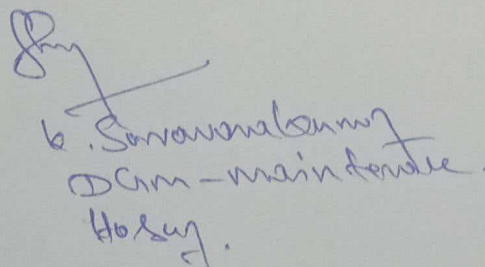 K. Saravanakumar
DGM-maintenance
Hosur.